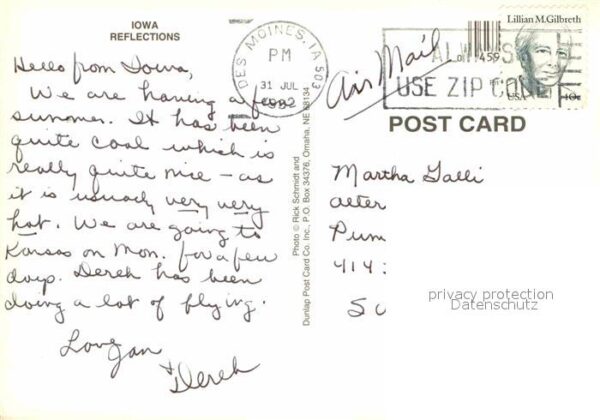 IOWA
REFLECTIONS
Hello from Iowa,
We are having a
summer. It has been
quite cool which is
really quite nice - as
it is usually very very
hot. We are going to
Kansas on Mon. for a few
days. Derek has been
doing a lot of flying.
Love Jan
+ Derek
Photo © Rick Schmidt and
Dunlap Post Card Co. Inc., P.O. Box 34376, Omaha, NE 68134
DES MOINES, IA 503
PM
31 JUL
1992
Air Mail
ALWAYS
USE ZIP CODE
459
Lillian M. Gilbreth
USA
POST CARD
Martha Galli
414
privacy protection
Datenschutz